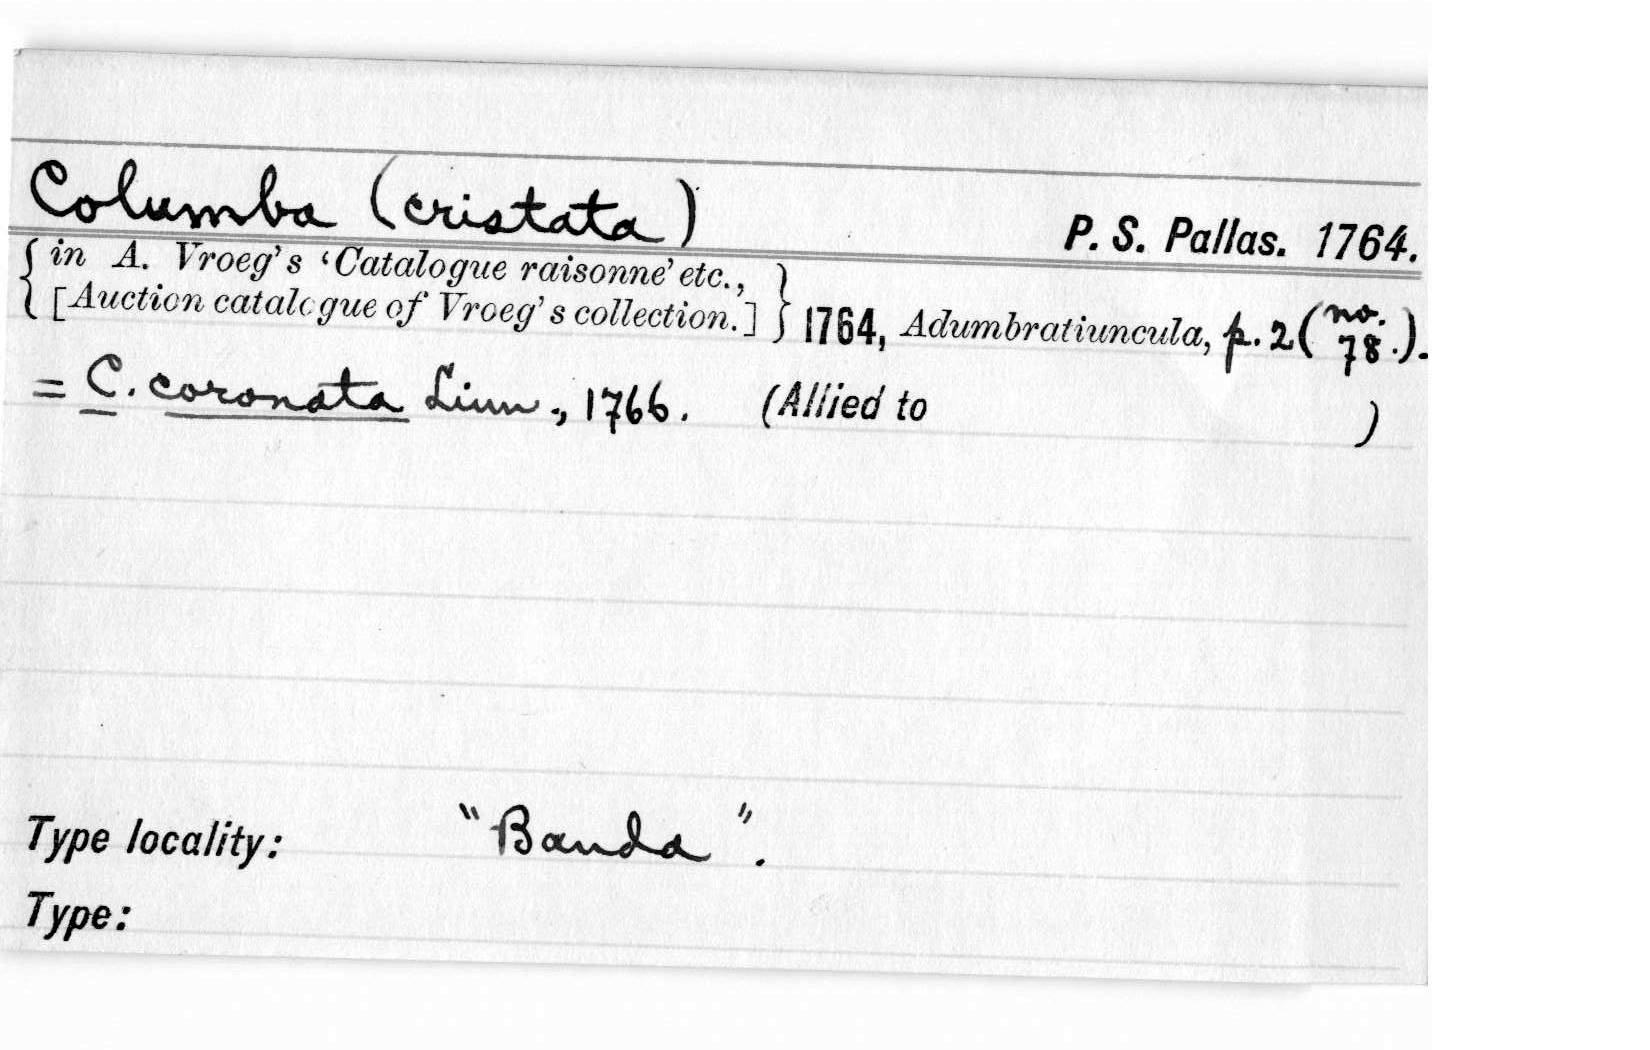 Columba (cristata)
P. S. Pallas. 1764.
{ in A. Vroeg's 'Catalogue raisonne' etc.,
[Auction catalogue of Vroeg's collection.] } 1764, Adumbratiuncula, p. 2 (no. 78.).
= C. coronata Linn., 1766. (Allied to )
Type locality: "Banda".
Type: